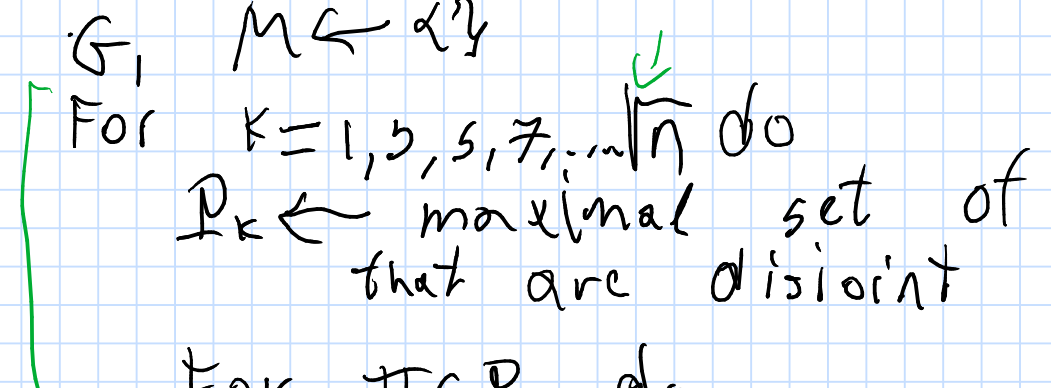 G, M ← {}
For K = 1, 3, 5, 7, ... √n do
P_K ← maximal set of
that are disjoint
For π ∈ P do